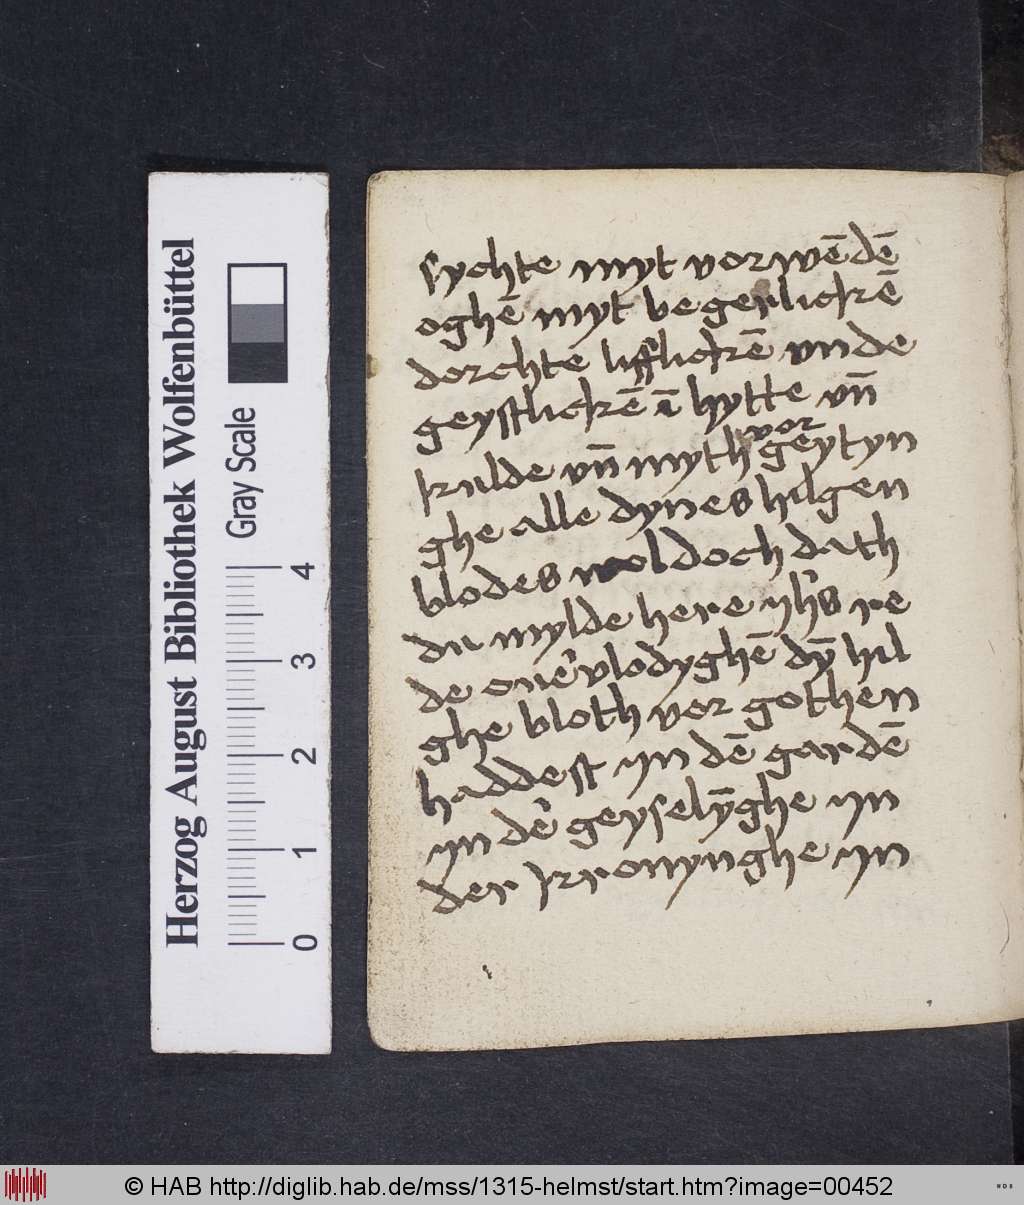 Herzog August Bibliothek Wolfenbüttel
Gray Scale
0 1 2 3 4
sychte myt vorwēdē
oghē myt begerlickē
dorchte lifflickē vnde
geystlickē ī hytte vn̄
kulde vn̄ myth vor geytyn
ghe alle dynes hilgen
blodes wol doch dath
du mylde here ihs re
de ouer vlodyghē dȳ hil
ghe bloth vor gothen
haddest yn dē gardē
yn der geyselȳghe yn
der kronynghe yn
© HAB http://diglib.hab.de/mss/1315-helmst/start.htm?image=00452